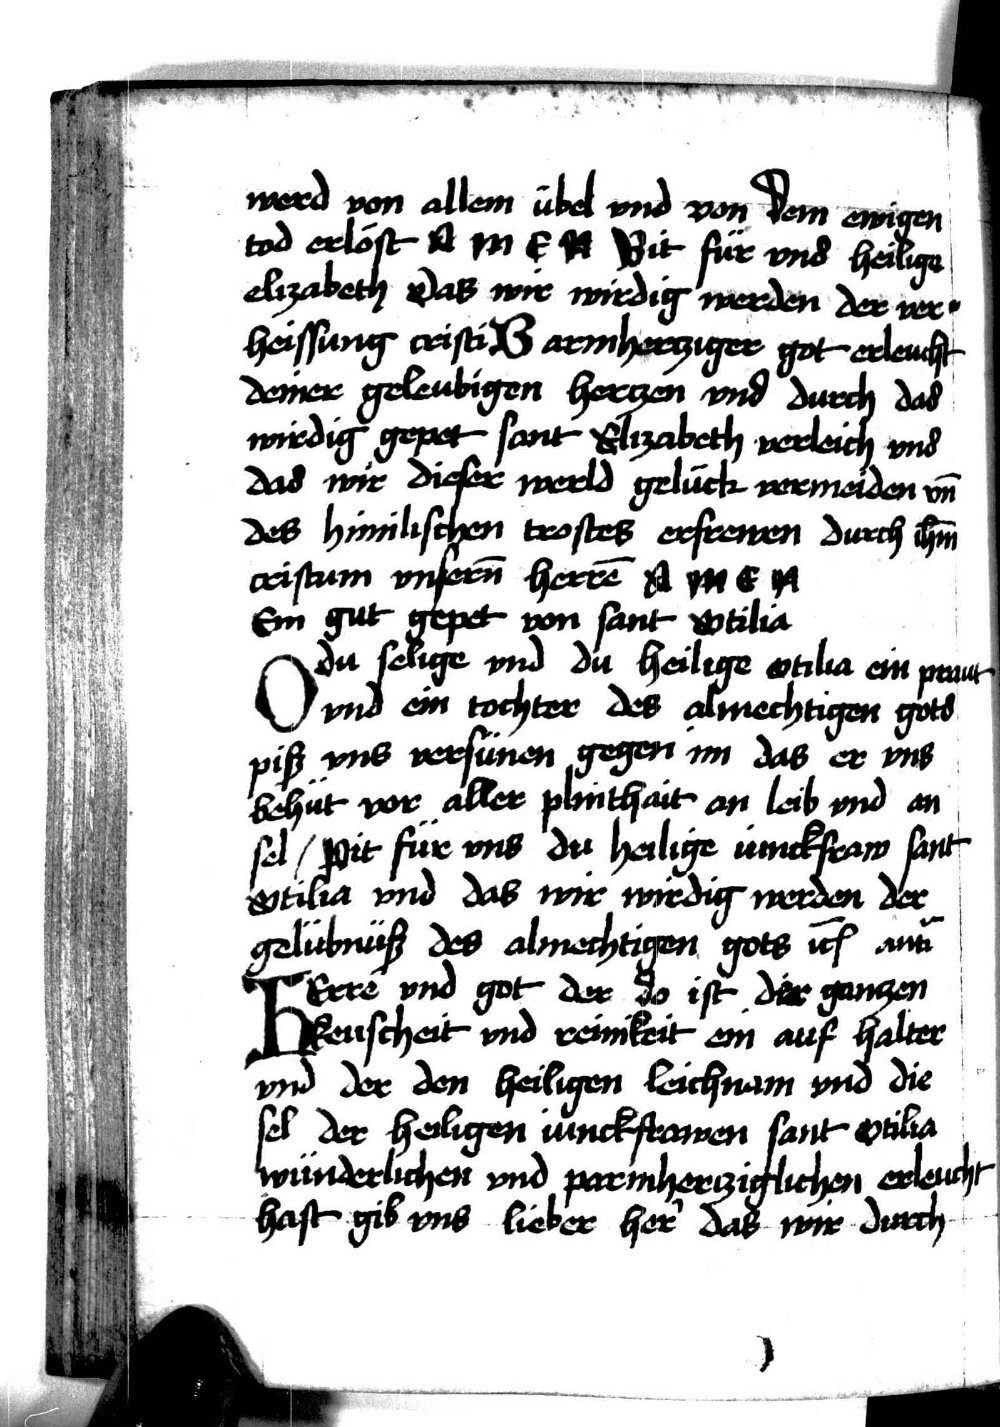 werd von allem übel vnd von dem ewigen
tod erlöst A M E N Bit für vnd heilige
elizabeth das wir wirdig werden der ver
heissung cristi Barmhertziger got erleucht
deiner geleubigen hertzen vnd durch das
wirdig gepet sant Elizabeth verleich vnd
das wir dieser werld gelück vermeiden vn̄
des himilischen trostes erfrewen durch ih̄m
cristum vnsern̄ herrē A M E N
Ein gut gepet von sant Otilia
O du selige vnd du heilige otilia ein praut
vnd ein tochter des almechtigen gots
piß vns versünen gegen im das er vns
behüt vor aller plinthait an leib vnd an
sel / Pit für vns du heilige iunckfraw sant
Otilia vnd das wir wirdig werden der
gelübnüß des almechtigen gots
HErre vnd got der do ist der gantzen
keuscheit vnd reinikeit ein auf halter
vnd der den heiligen leichnam vnd die
sel der heiligen iunckfrawen sant otilia
wünderlichen vnd parmhertziglichen erleucht
hast gib vns lieber her' das wir durch